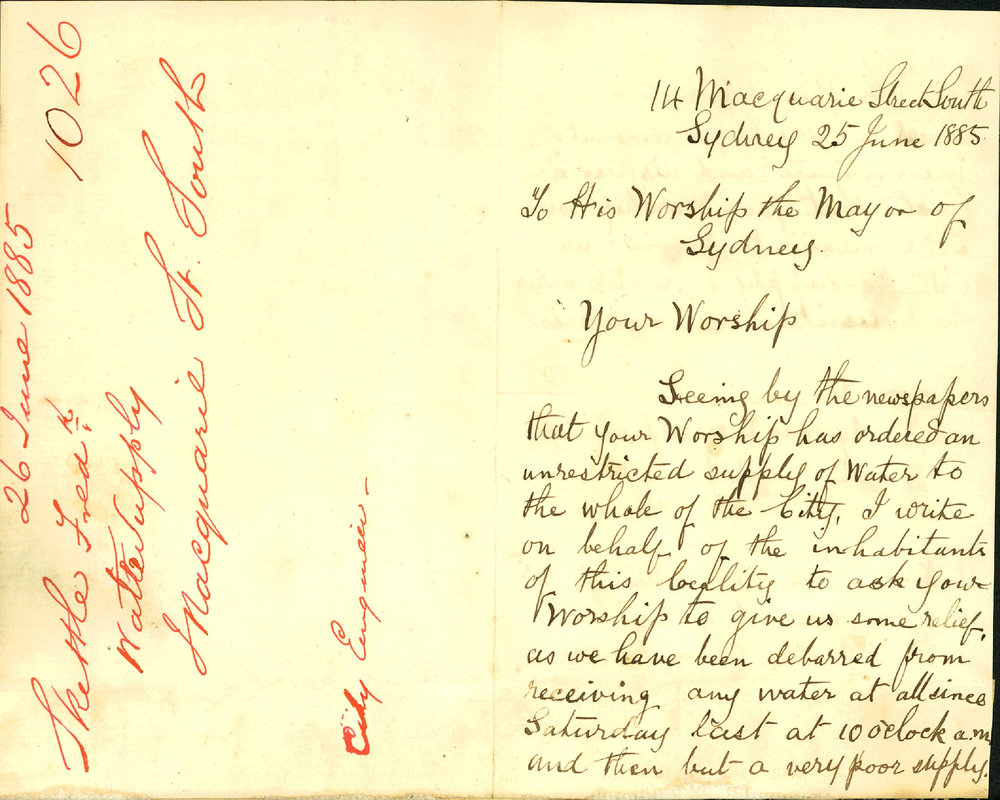 26 June 1885 1026
Skettle Fredk.
Water Supply
Macquarie St. South
City Engineer -
114 Macquarie Street South
Sydney 25 June 1885.
To His Worship the Mayor of
Sydney.
Your Worship
Seeing by the newspapers
that your Worship has ordered an
unrestricted supply of Water to
the whole of the City, I write
on behalf of the inhabitants
of this locality to ask your
Worship to give us some relief,
as we have been debarred from
receiving any water at all since
Saturday last at 10 oclock a.m.
and then but a very poor supply.